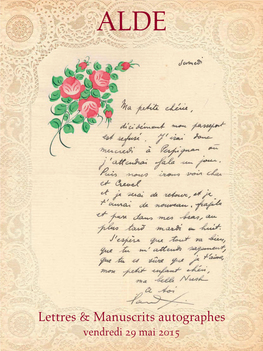 ALDE
Samedi
Ma petite chérie,
décidément mon passeport
est refusé. J'irai donc
mercredi à Perpignan où
j'attendrai Gala un jour.
Puis nous irons voir Char
et Crevel
et je serai de retour, et je
t'aurai de nouveau, fragile
et pure dans mes bras, au
plus tard mardi en huit.
J'espère que tout va bien,
que tu m'attends sagement,
que tu es sûre que je t'aime,
mon petit enfant chéri,
ma belle Nusch
à toi
Lettres & Manuscrits autographes
vendredi 29 mai 2015